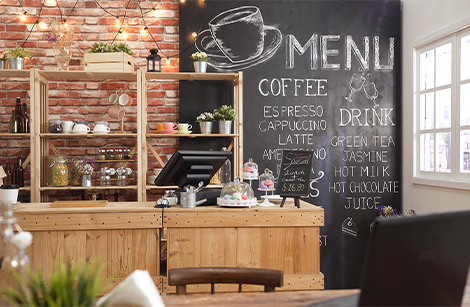 MENU
COFFEE
ESPRESSO
CAPPUCCINO
LATTE
DRINK
GREEN TEA
JASMINE
HOT MILK
HOT CHOCOLATE
JUICE